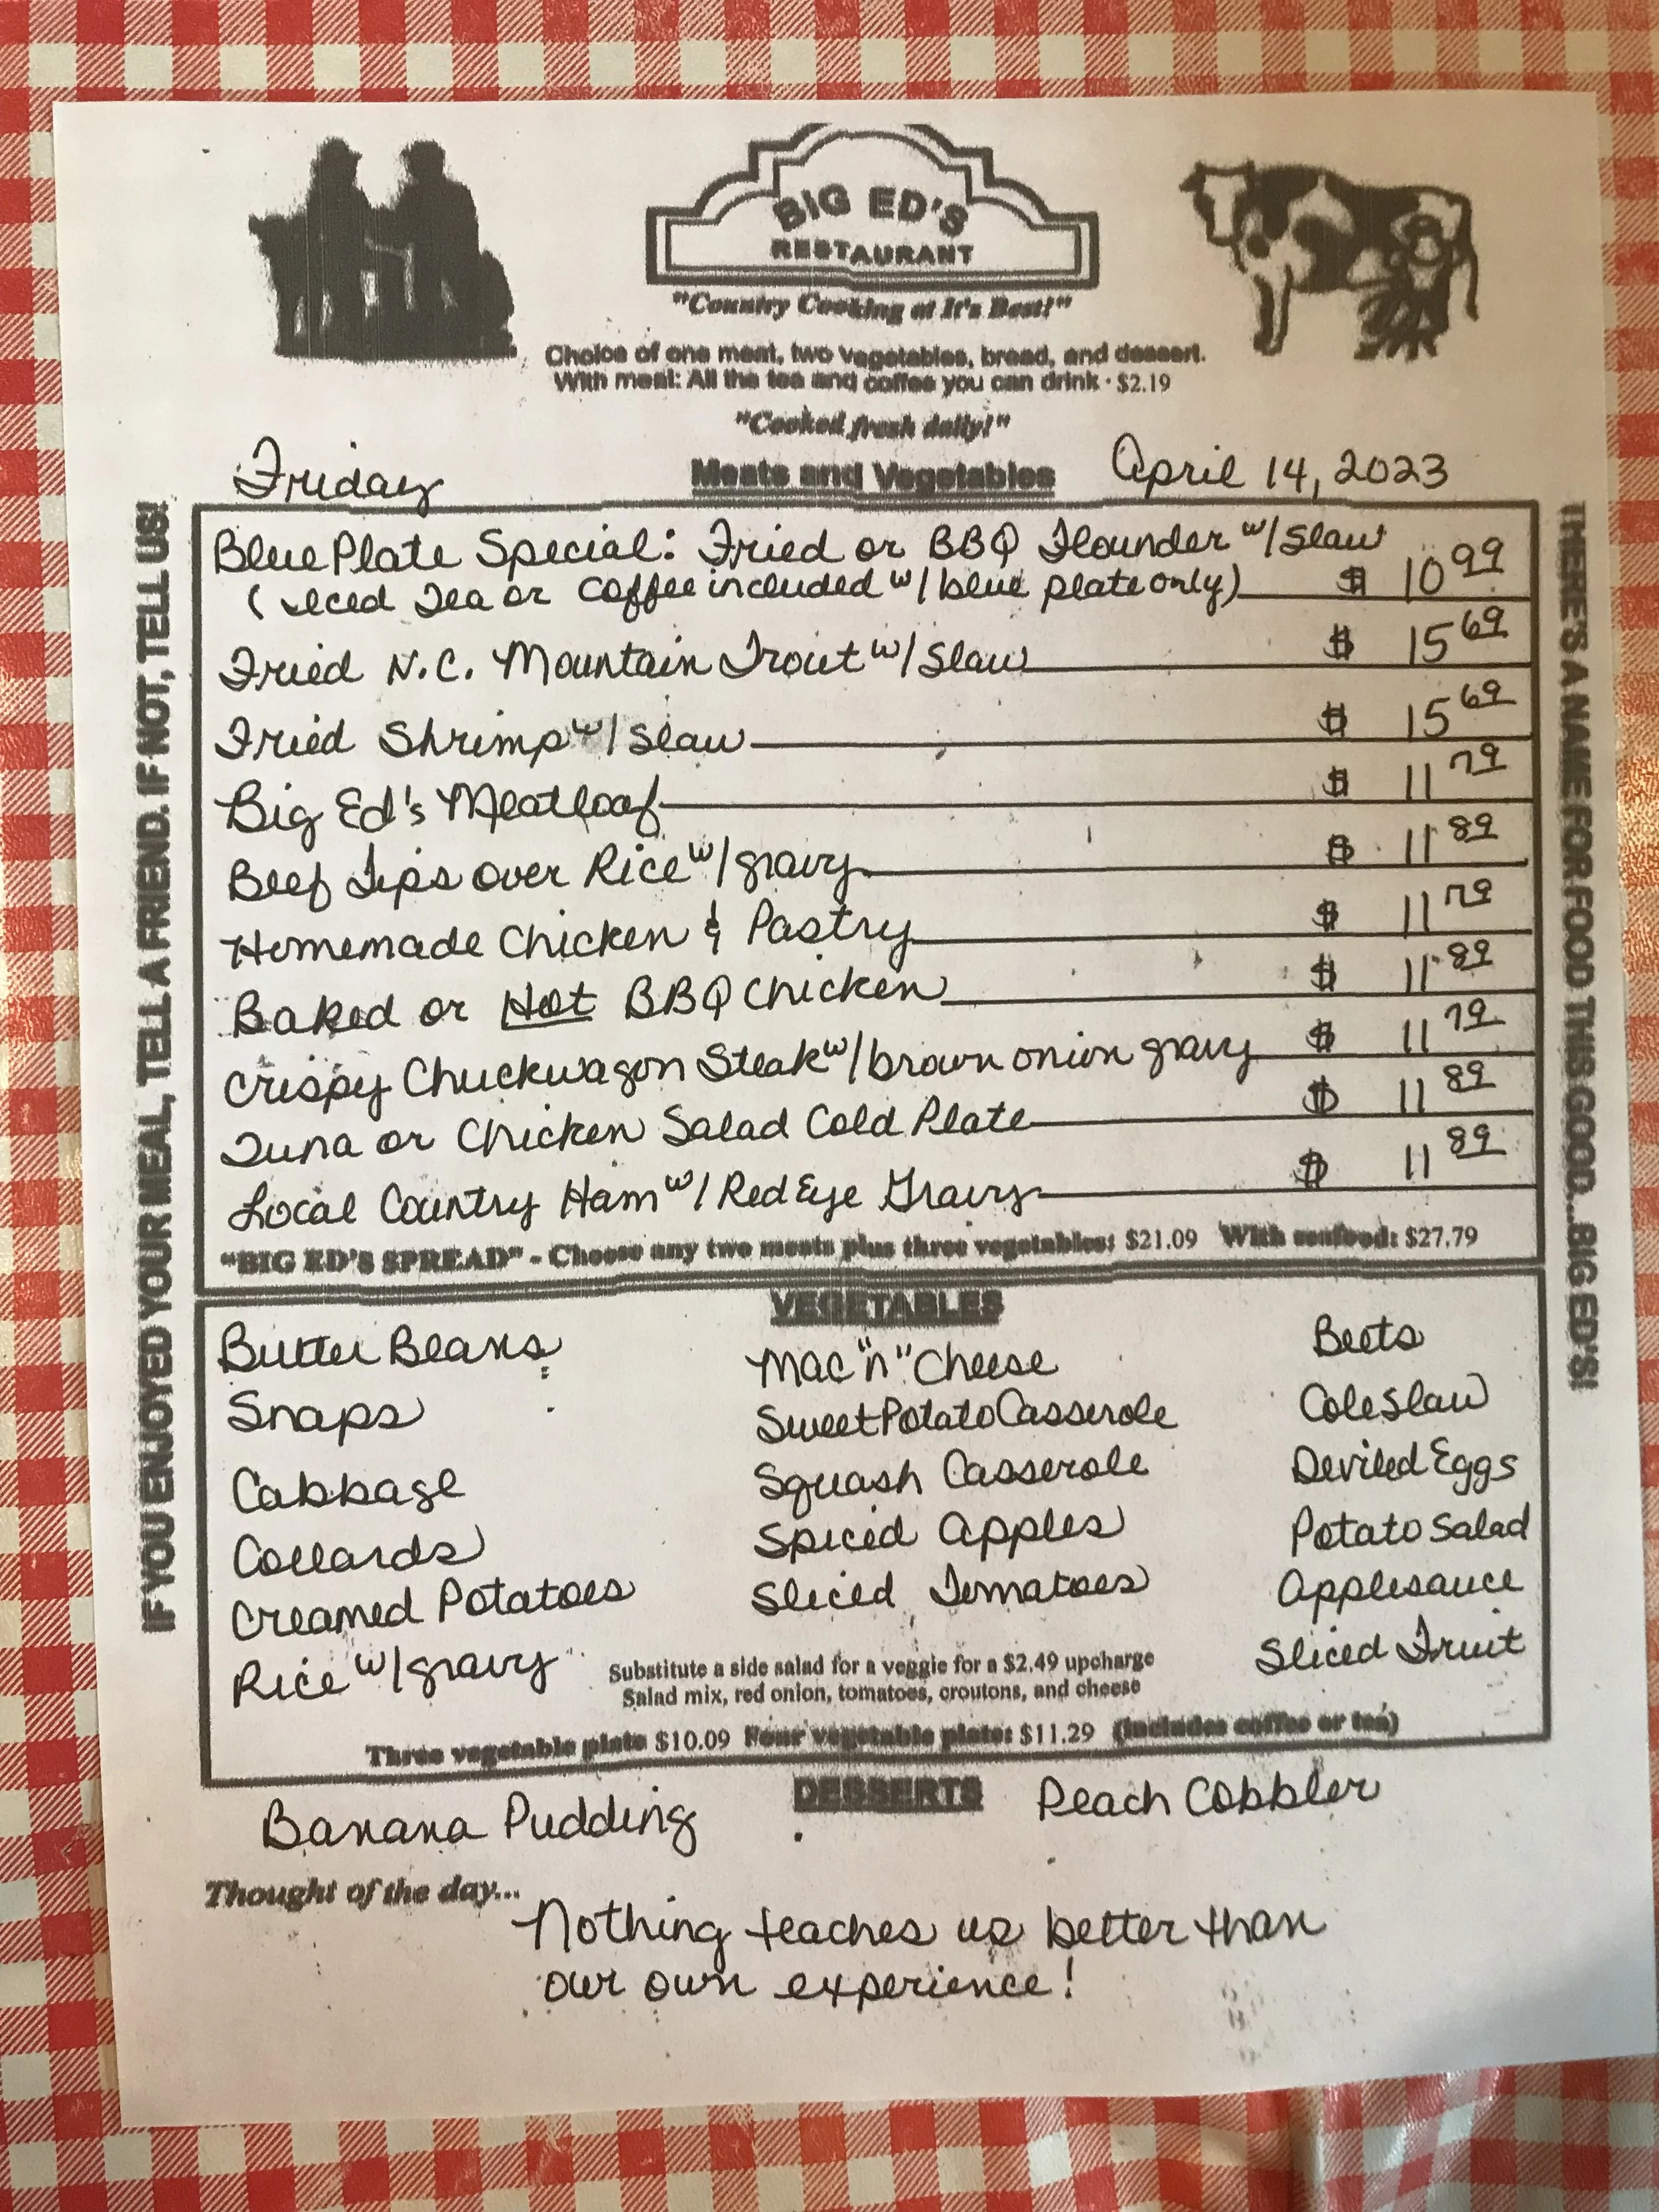 BIG ED'S
RESTAURANT
"Country Cooking at It's Best!"
Choice of one meat, two vegetables, bread, and dessert.
With meal: All the tea and coffee you can drink · $2.19
"Cooked fresh daily!"
Friday Meats and Vegetables April 14, 2023
IF YOU ENJOYED YOUR MEAL, TELL A FRIEND. IF NOT, TELL US!
Blue Plate Special: Fried or BBQ Flounder w/ Slaw
(iced Tea or Coffee included w/ blue plate only) $ 10 99
Fried N.C. Mountain Trout w/ Slaw $ 15 69
Fried Shrimp w/ Slaw $ 15 69
Big Ed's Meatloaf $ 11 79
Beef Tips over Rice w/ gravy $ 11 89
Homemade Chicken & Pastry $ 11 79
Baked or Hot BBQ Chicken $ 11 89
Crispy Chuckwagon Steak w/ brown onion gravy $ 11 79
Tuna or Chicken Salad Cold Plate $ 11 89
Local Country Ham w/ Red Eye Gravy $ 11 89
"BIG ED'S SPREAD" - Choose any two meats plus three vegetables: $21.09 With seafood: $27.79
THERE'S A NAME FOR FOOD THIS GOOD...BIG ED'S!
VEGETABLES
Butter Beans Mac "n" Cheese Beets
Snaps Sweet Potato Casserole Cole Slaw
Cabbage Squash Casserole Deviled Eggs
Collards Spiced Apples Potato Salad
Creamed Potatoes Sliced Tomatoes Applesauce
Rice w/ gravy Sliced Fruit
Substitute a side salad for a veggie for a $2.49 upcharge
Salad mix, red onion, tomatoes, croutons, and cheese
Three vegetable plate $10.09 Four vegetable plate: $11.29 (includes coffee or tea)
DESSERTS
Banana Pudding Peach Cobbler
Thought of the day...
Nothing teaches us better than
our own experience!